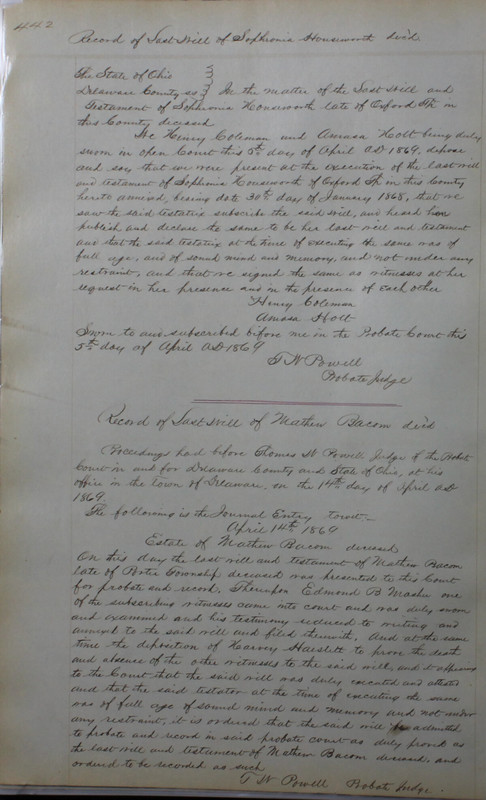 442
Record of Last Will of Sophronia Housworth dec'd
The State of Ohio
Delaware County ss } In the matter of the Last Will and
Testament of Sophronia Housworth late of Oxford Tp in
this County deceased
We Henry Coleman and Amasa Holt being duly
sworn in open Court this 5th day of April AD 1869, depose
and say that we were present at the execution of the last will
and testament of Sophronia Housworth of Oxford Tp in this County
hereto annexed, bearing date 30th day of January 1868, that we
saw the said testatrix subscribe the said will, and heard her
publish and declare the same to be her last will and testament
and that the said testatrix at the time of executing the same was of
full age, and of sound mind and memory, and not under any
restraint, and that we signed the same as witnesses at her
request in her presence and in the presence of each other
Henry Coleman
Amasa Holt
Sworn to and subscribed before me in the Probate Court this
5th day of April AD 1869
T W Powell
Probate Judge
Record of Last Will of Mathew Bacom dec'd
Proceedings had before Thomas W Powell Judge of the Probate
Court in and for Delaware County and State of Ohio, at his
office in the town of Delaware, on the 14th day of April AD
1869.
The following is the Journal Entry towit
April 14th 1869
Estate of Mathew Bacom deceased
On this day the last will and testament of Mathew Bacom
late of Porter Township deceased was presented to this Court
for probate and record. Thereupon Edmond B one
of the subscribing witnesses came into court and was duly sworn
and examined and his testimony reduced to writing and
annexed to the said will and filed therewith. And at the same
time the deposition of Harvey to prove the death
and absence of the other witnesses to the said will, and it appearing
to the Court that the said will was duly executed and attested
and that the said testator at the time of executing the same
was of full age of sound mind and memory and not under
any restraint, it is ordered that the said will be admitted
to probate and record in said probate court as duly proved as
the last will and testament of Mathew Bacom deceased, and
ordered to be recorded as such
T W Powell Probate Judge.